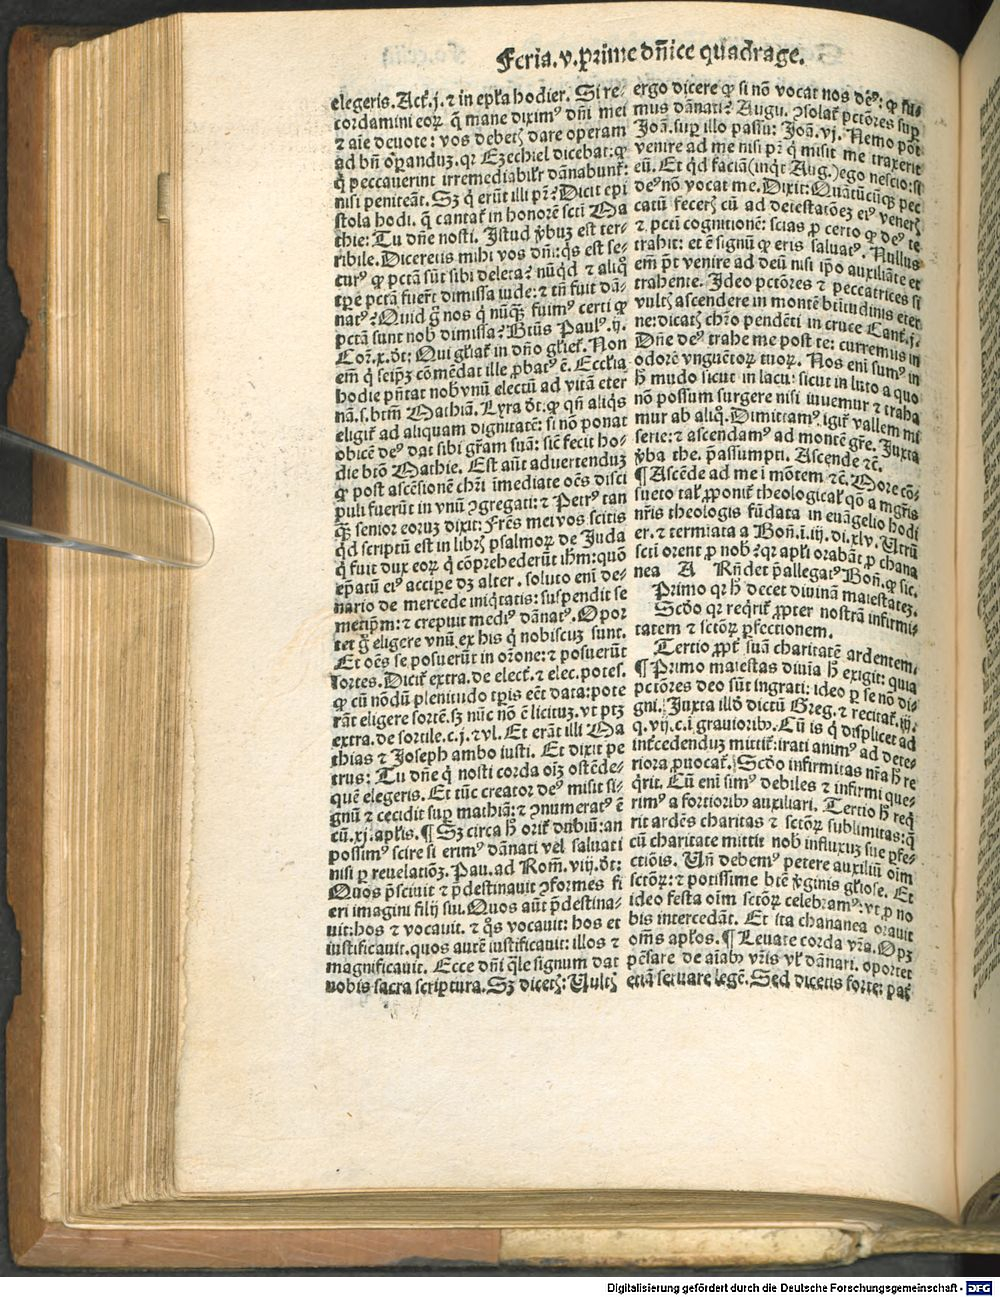 Feria.v.prime dñice quadrage.
elegeris. Act̄.j. ⁊ in ep̄la hodier. Si re-
cordamini eoꝝ q̄ mane diximꝰ dñi mei
⁊ aīe deuote: vos debetꝭ dare operam
ad bñ oꝑanduꝫ. qꝛ Ezechiel dicebat: ꝙ
q̇ peccauerint irremediabilr̄ dānabunt̄:
nisi peniteāt. Sꝫ q̇ erūt illi pr̄? Dicit epi
stola hodi. q̄ cantat̄ in honorē scti Ma
thie: Tu dñe nosti. Istud ꝟbuꝫ est ter-
ribile. Diceretis mihi vos dñi: q̇s est se-
curꝰ ꝙ pctā sūt sibi deleta? nūq̇d ⁊ aliq̊
tꝑe pctā fuer̄t dimissa iude: ⁊ tñ fuit dā-
natꝰ? Quid g̊ nos q̇ nūqꝫ fuimꝰ certi ꝙ
pctā sunt nob̄ dimissa? Btūs Paulꝰ. ij.
Coꝛ. x. dt̄: Qui gl̄iat̄ in dño gl̄iet̄. Non
em̄ q̇ seip̄ꝫ cōmēdat ille ꝓbatꝰ ē. Eccl̄ia
hodie pñtat nob̄ vnū electū ad vitā eter
nā. s. btm̄ Mathiā. Lyra dt̄. ꝙ qñ aliq̇s
eligit̄ ad aliquam dignitatē: si nō ponat
obicē deꝰ dat sibi gr̄am suā: sic̄ fecit ho-
die btō Mathie. Est aūt aduertenduꝫ
ꝙ post ascēsionē chr̄i imediate oēs disci
puli fuerūt in vnū ꝯgregati: ⁊ Petrꝰ tan
qꝫ senior eoruꝫ dixit: Fr̄es mei vos scitis
q̇d scriptū est in libr̄ꝭ psalmoꝝ de Juda
q̇ fuit dux eoꝝ q̇ cōprehederūt ihm̄: quō
ep̄atū eiꝰ accipe dꝫ alter. soluto enī de-
nario de mercede iniq̇tatis: suspendit se
metip̄m: ⁊ crepuit mediꝰ dānatꝰ. Opor
tet g̊ eligere vnū ex his q̇ nobiscuꝫ sunt.
Et oēs se posuerūt in or̄one: ⁊ posuerūt
sortes. Dicit̄ extra. de elect̄. ⁊ elec. potes.
ꝙ cū nōdū plenitudo tꝑis eēt data: pote
rāt eligere sortē. sꝫ nūc nō ē licituꝫ. vt ptꝫ
extra. de sortile. c. j. ⁊ vl. Et erāt illi Ma
thias ⁊ Joseph ambo iusti. Et dixit pe
trus: Tu dñe q̇ nosti corda oīꝫ ostēde-
quē elegeris. Et tūc creator deꝰ misit si-
gnū ⁊ cecidit suꝑ mathiā: ⁊ ꝯnumeratꝰ ē
cū. xj. apl̄is. ¶ Sꝫ circa h̄ orit̄ dubiū: an
possimꝰ scire si erimꝰ dānati vel saluati
nisi ꝑ reuelatiōꝫ. Pau. ad Rom̄. viij. dt̄:
Quos p̄sciuit ⁊ p̄destinauit ꝯformes fi
eri imagini filij sui. Quos aūt p̄destina-
uit: hos ⁊ vocauit. ⁊ q̊s vocauit: hos et
iustificauit. quos autē iustificauit: illos ⁊
magnificauit. Ecce dñi q̄le signum dat
nobis sacra scriptura. Sꝫ dicetꝭ: Vultꝭ
ergo dicere ꝙ si nō vocat nos deꝰ: ꝙ su-
mus dānati? Augu. ꝯsolat̄ pctōres suꝑ
Joā. suꝑ illo passu: Joā. vj. Nemo pōt
venire ad me nisi pr̄ q̇ misit me traxerit
eū. Et q̇d faciā (inq̇t Aug.) ego nescio: si
deꝰ nō vocat me. Dixit: Quātūcūqꝫ pec
catū fecerꝭ cū ad detestatōeꝫ eiꝰ venerꝭ
⁊ pcti cognitionē: scias ꝓ certo ꝙ deꝰ te
trahit: et ē signū ꝙ eris saluatꝰ. Nullus
em̄ pt̄ venire ad deū nisi ip̄o auxiliāte et
trahente. Ideo pctōres ⁊ peccatrices si
vultꝭ ascendere in montē btitudinis eter
ne: dicatꝭ chr̄o pendēti in cruce Cant̄. j.
Dñe deꝰ trahe me post te: curremus in
odorē vnguētoꝝ tuoꝝ. Nos enī sumꝰ in
h̄ mūdo sicut in lacu: sicut in luto a quo
nō possum surgere nisi iuuemur ⁊ traha
mur ab aliq̊. Dimittamꝰ igit̄ vallem mi
serie: ⁊ ascendamꝰ ad montē gr̄e. Juxta
ꝟba the. p̄assumpti. Ascende ⁊c̄.
¶ Ascēde ad me i mōtem ⁊c̄. More cō-
sueto tal̄ ꝓponit̄ theological̄ qō a mgr̄is
nr̄is theologis fūdata in euāgelio hodi
er. ⁊ termiata a Boñ. i. iij. di. xlv. Utrū
scti orent ꝓ nob̄? qꝛ apl̄i orabāt ꝓ chana
nea A Rñdet p̄allegatꝰ Boñ. ꝙ sic.
Primo qꝛ h̄ decet diuinā maiestateꝫ.
Scd̄o qꝛ reqrit̄ ꝓpter nostrā infirmi-
tatem ⁊ sctōꝝ ꝑfectionem.
Tertio ꝓpt̄ suā charitatē ardentem.
¶ Primo maiestas diuīa h̄ exigit: quia
pctōres deo sūt ingrati: ideo ꝑ se nō di-
gni. Juxta illd̄ dictū Greg. ⁊ recitat̄. iij.
q. vij. c. i grauiorib. Cū is q̇ displicet ad
int̄cedenduꝫ mittit̄: irati animꝰ ad dete-
riora ꝓuocat̄. Scd̄o infirmitas nr̄a h̄ re
q̇rit. Cū enī simꝰ debiles ⁊ infirmi que-
rimꝰ a fortiorib auxiliari. Tertio h̄ req̇
rit ardēs charitas ⁊ sctōꝝ sublimitas: q̇
cū charitate mittit nob̄ influxuꝫ sue ꝑfe-
ctiōis. Uñ debemꝰ petere auxiliū oīm
sctōꝝ: ⁊ potissime btē ꝟginis gl̄iose. Et
ideo festa oīm sctōꝝ celebramꝰ: vt ꝓ no
bis intercedāt. Et ita chananea orauit
om̄s apl̄os. ¶ Leuare corda vr̄a. Opꝫ
pēsare de aīab vr̄is vl̄ dānari. oportet
etiā seruare legē. Sed dicetis forte: pat̄
Digitalisierung gefördert durch die Deutsche Forschungsgemeinschaft - DFG